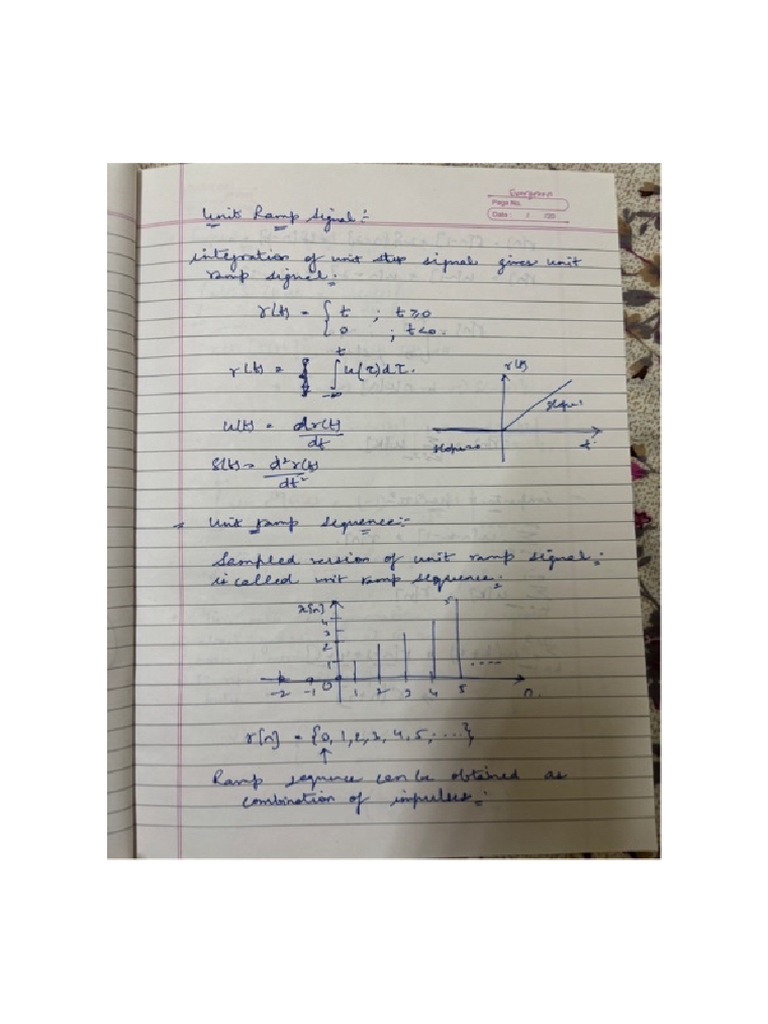 Page No.
Date : / /20
Unit Ramp signal :-
integration of unit step signal gives unit
ramp signal :
r(t) = { t ; t≥0
0 ; t<0.
r(t) = ∫ u(τ)dτ.
t
-∞
r(t)
slope 1
slope 0
t
u(t) = dr(t)
dt
δ(t) = d²r(t)
dt²
Unit ramp sequence :-
Sampled version of unit ramp signal :
is called unit ramp sequence :
r[n]
5
4
3
2
1
-2 -1 0 1 2 3 4 5 n.
....
r[n] = {0, 1, 2, 3, 4, 5, ....},
↑
Ramp sequence can be obtained as
combination of impulses :